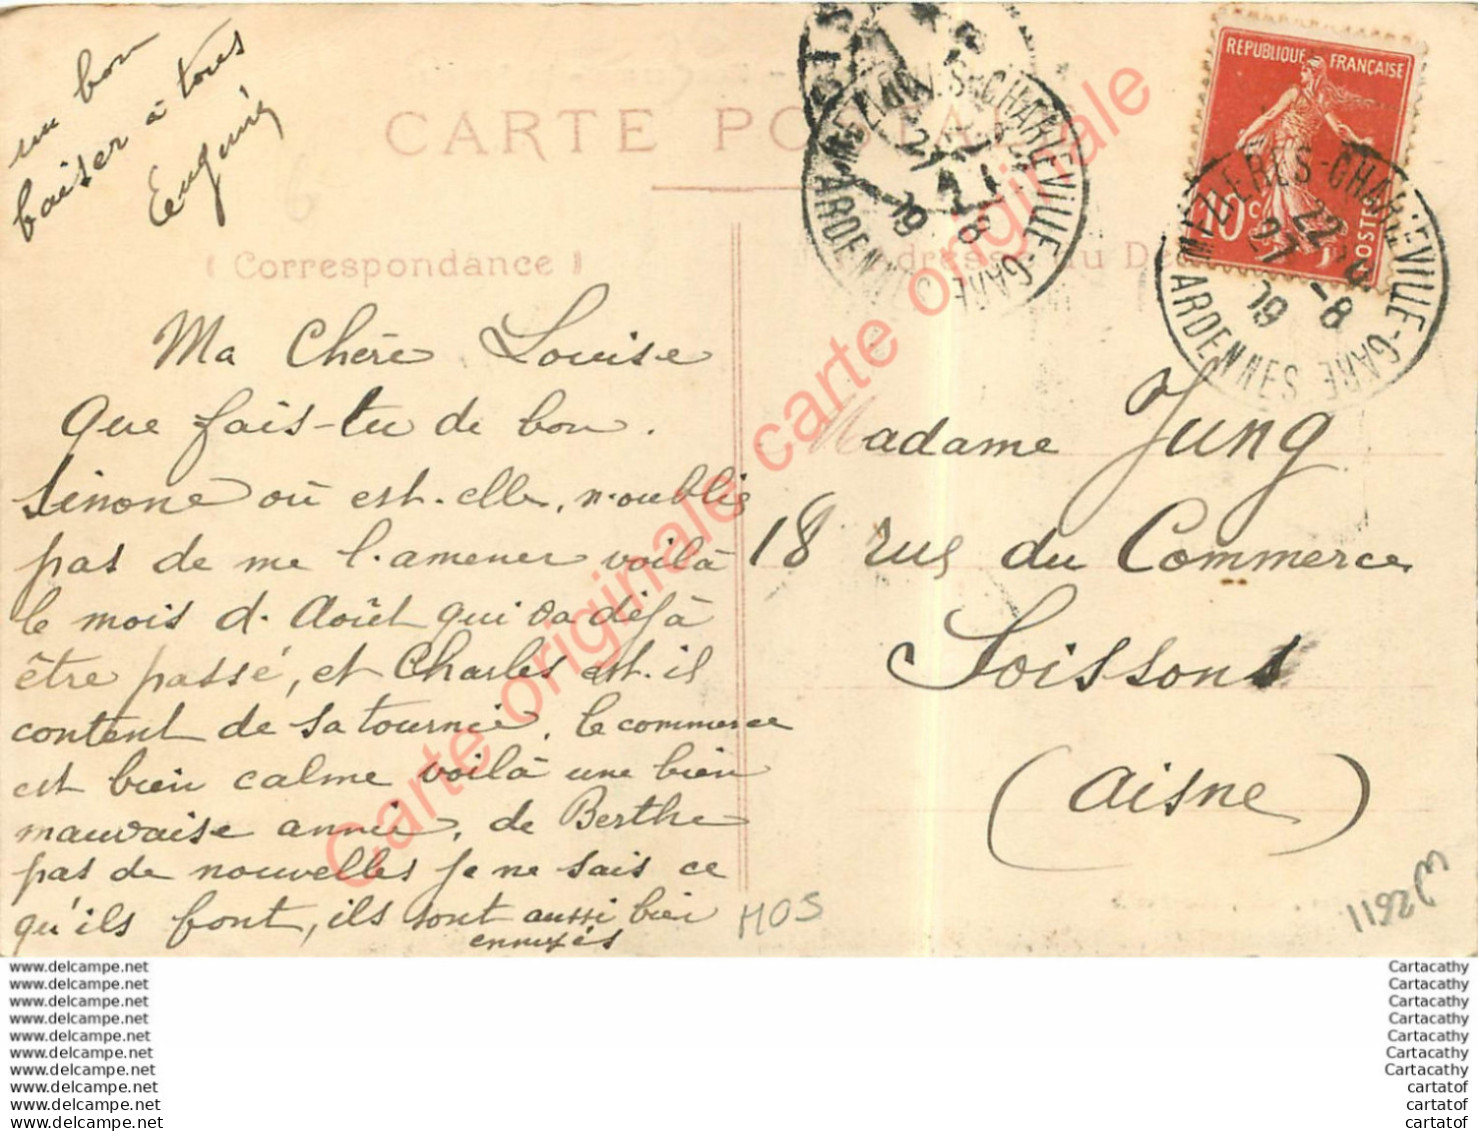 un bon
baiser à tous
Eugénie
CARTE POSTALE
Correspondance
Ma Chère Louise
Que fais-tu de bon.
Sinone où est-elle, n'oublie
pas de me l'amener voilà
le mois d'Août qui va déjà
être passé, et Charles est-il
content de sa tournée, le commerce
est bien calme voilà une bien
mauvaise année, de Berthe
pas de nouvelles je ne sais ce
qu'ils font, ils sont aussi bien
ennuyés
REPUBLIQUE FRANÇAISE
10c
POSTES
MEZIERES-CHARLEVILLE-GARE
22
27-8
19
ARDENNES
MEZIERES-CHARLEVILLE-GARE
27-8
19
ARDENNES
Madame Jung
18 rue du Commerce
Soissons
(Aisne)
HOS
W2611
Carte originale carte originale
www.delcampe.net
www.delcampe.net
www.delcampe.net
www.delcampe.net
www.delcampe.net
www.delcampe.net
www.delcampe.net
www.delcampe.net
www.delcampe.net
www.delcampe.net
Cartacathy
Cartacathy
Cartacathy
Cartacathy
Cartacathy
Cartacathy
Cartacathy
cartatof
cartatof
cartatof